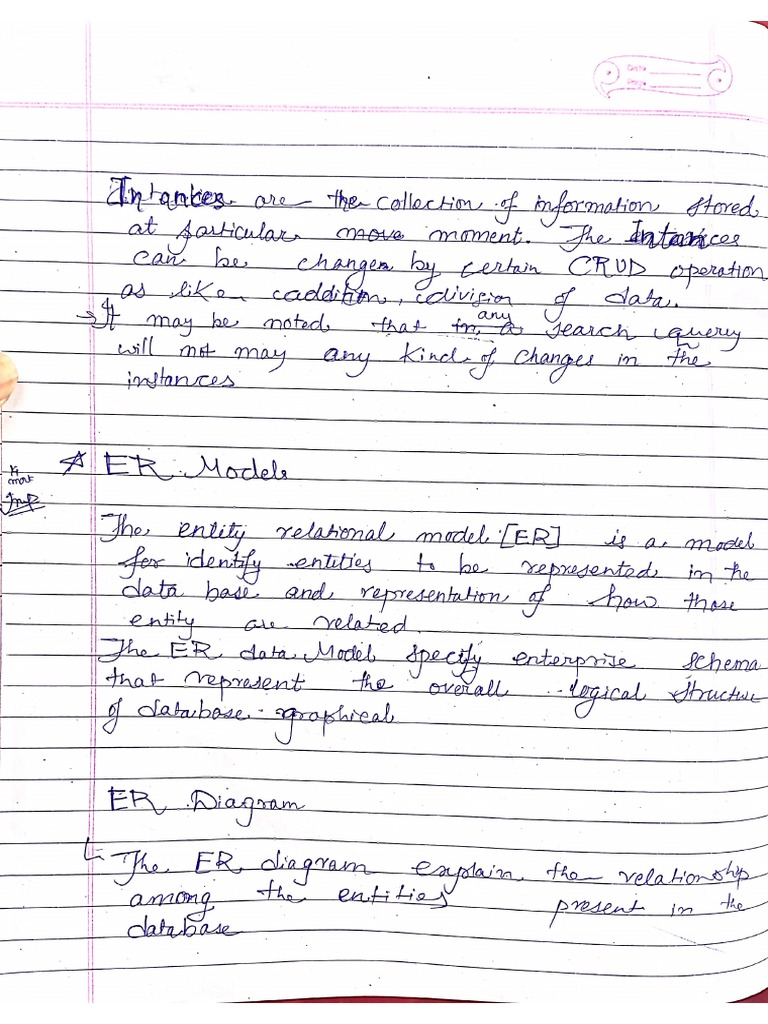 Date
Page
Intances are the collection of information stored
at particular move moment. The Intances
can be changen by certain CRUD operation
as like caddition, cdivision of data.
→ It may be noted that in any a search query
will not may any kind of changes in the
instances
☆ ER Models
most
Imp
The entity relational model [ER] is a model
for identify entities to be represented in the
data base and representation of how those
entity are related.
The ER data Model specify enterprise schema
that represent the overall logical structure
of database graphical
ER Diagram
The ER diagram explain the relationship
among the entities present in the
database